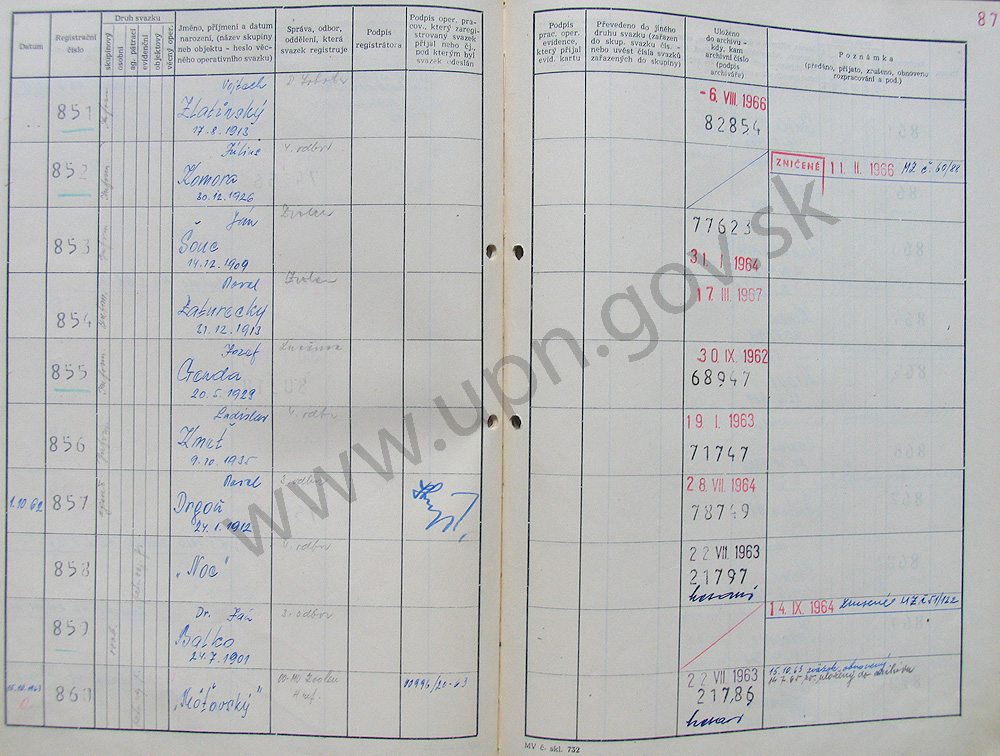 87
Datum
Registrační číslo
Druh svazku
skupinový
osobní
ag. pátrací
evidenční
objektový
věcný oper.
Jméno, příjmení a datum
narození, (název skupiny
neb objektu - heslo věc-
ného operativního svazku)
Správa, odbor,
oddělení, která
svazek registruje
Podpis
registrátora
Podpis oper. pra-
cov., který zaregi-
strovaný svazek
přijal nebo čj.,
pod kterým byl
svazek odeslán
Podpis
prac. oper.
evidence,
který přijal
evid. kartu
Převedeno do jiného
druhu svazku (zařazen
do skup. svazku čís. -
nebo uvést čísla svazků
zařazených do skupiny)
Uloženo
do archivu -
kdy, kam
archivní číslo
(podpis
archiváře)
Poznámka
(předáno, přijato, zrušeno, obnoveno
rozpracování a pod.)
851
Vojtech
Zlatínský
17.8.1913
- 6. VIII. 1966
82854
852
Július
Komora
30.12.1926
4. odbor
ZNIČENÉ
11. II. 1966 MZ č. 60/88
853
Ján
Šouc
14.12.1909
Zvolen
77623
31. I. 1964
854
Pavel
Zaturecký
21.12.1913
Zvolen
17. III. 1967
855
Jozef
Genda
20.5.1929
Lučenec
30. IX. 1962
68947
856
Ladislav
Kmeť
9.10.1935
4. odbor
19. I. 1963
71747
1.10.62
857
Pavel
Drgoň
24.1.1912
3. odbor
28. VII. 1964
78749
858
„Noc"
4. odbor
22. VII. 1963
21797
859
Dr. Ján
Balko
24.7.1901
3. odbor
14. IX. 1964
15.10.1963
860
„Môťovský"
OO-MV Zvolen
00996/20-63
22. VII. 1963
21786
15.10.63 svazok obnovený
uložený do archívu
MV č. skl. 732
www.upn.gov.sk